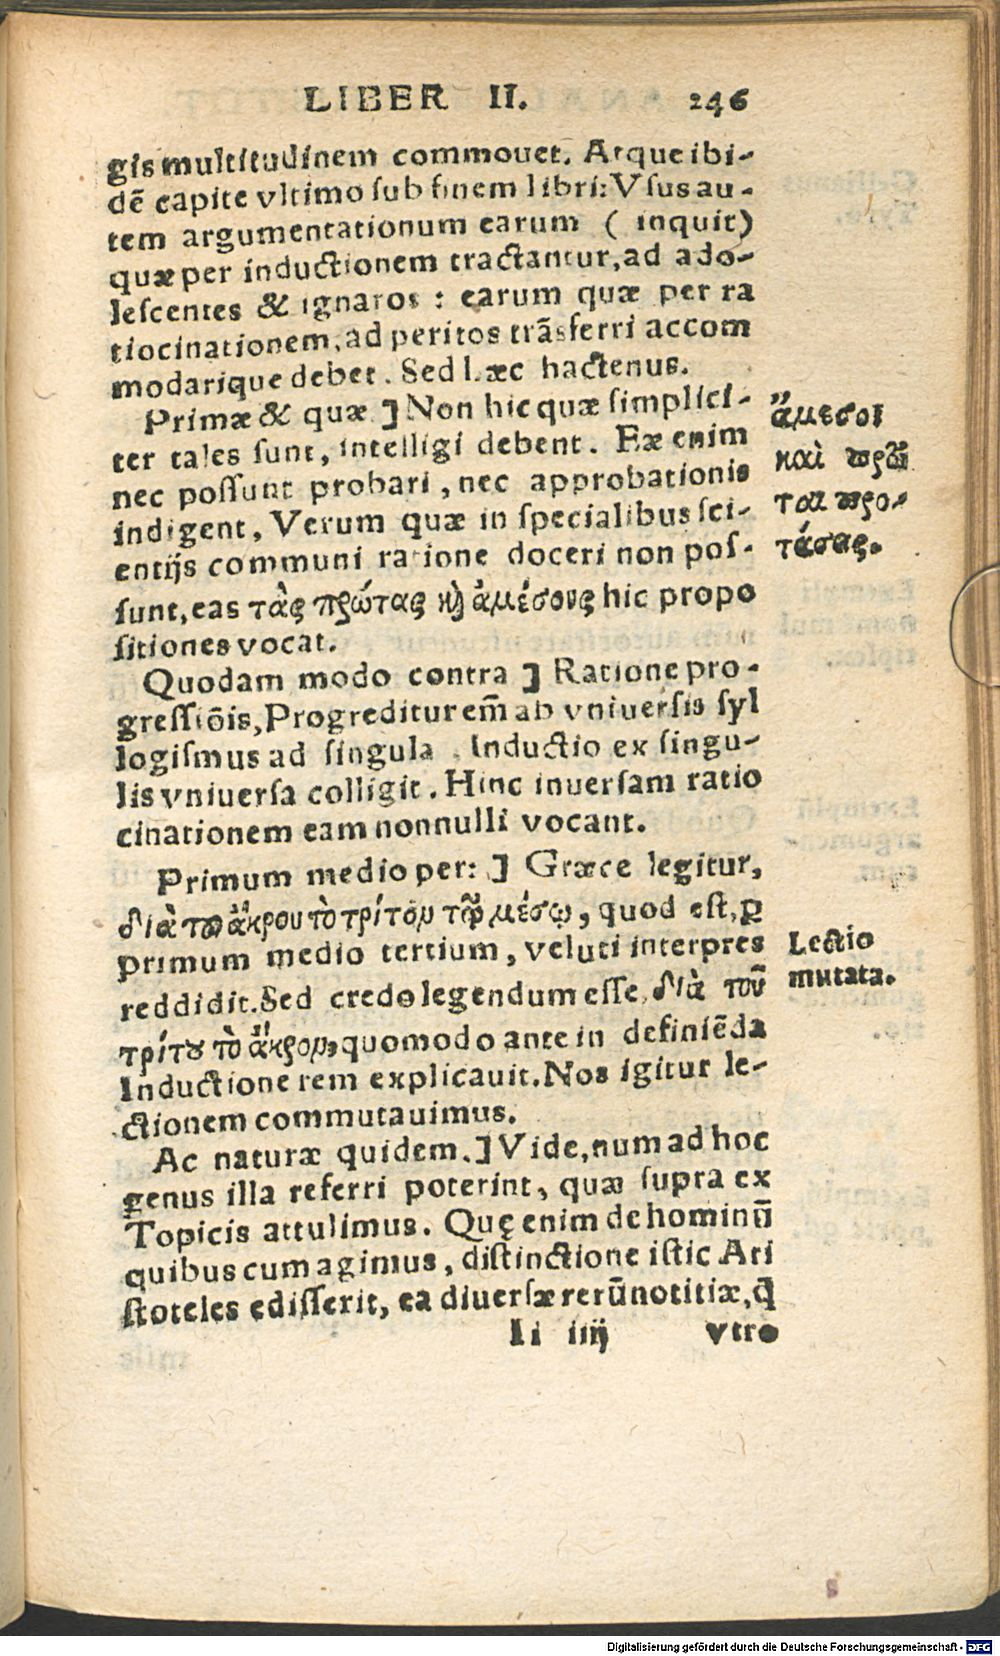 LIBER II. 246
gis multitudinem commouet. Atque ibi-
dē capite vltimo sub finem libri: Vsus au-
tem argumentationum earum ( inquit)
quæ per inductionem tractantur, ad ado-
lescentes & ignaros : earum quæ per ra
tiocinationem, ad peritos trāsferri accom
modarique debet. Sed hæc hactenus.
Primæ & quæ ] Non hic quæ simplici-
ter tales sunt, intelligi debent. Eæ enim
nec possunt probari, nec approbationis
indigent, Verum quæ in specialibus sci-
entijs communi ratione doceri non pos-
sunt, eas τὰς πρώτας κὴ ἀμέσους hic propo
sitiones vocat.
ἄμεσοι
καὶ πρῶ
ται προ-
τάσας.
Quodam modo contra ] Ratione pro-
gressiōis, Progreditur em̄ ab vniuersis syl
logismus ad singula . Inductio ex singu-
lis vniuersa colligit. Hinc inuersam ratio
cinationem eam nonnulli vocant.
Primum medio per: ] Græce legitur,
διὰ τοῦ ἄκρου τὸ τρίτον τῷ μέσῳ, quod est, ꝑ
primum medio tertium, veluti interpres
reddidit. Sed credo legendum esse, διὰ τοῦ
τρίτου τὸ ἄκρον, quomodo ante in definiēda
Inductione rem explicauit. Nos igitur le-
ctionem commutauimus.
Lectio
mutata.
Ac naturæ quidem. ] Vide, num ad hoc
genus illa referri poterint, quæ supra ex
Topicis attulimus. Quę enim de hominū
quibuscum agimus, distinctione istic Ari
stoteles edisserit, ea diuersæ rerū notitiæ, q̄
Ii iiij vtro
Digitalisierung gefördert durch die Deutsche Forschungsgemeinschaft - DFG